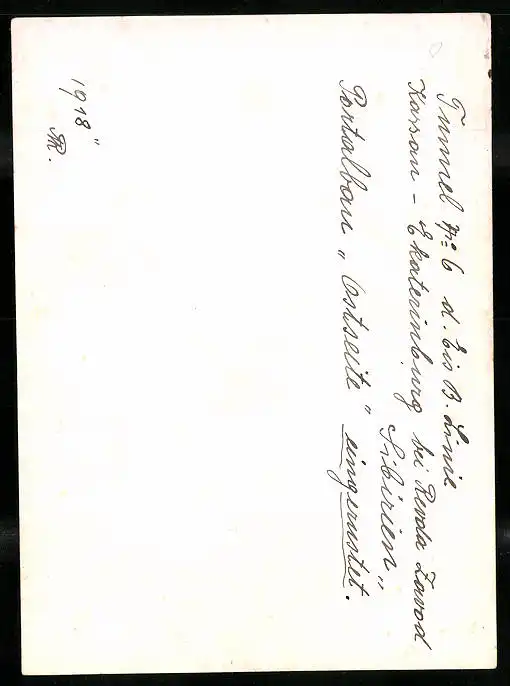 Tunnel No 6 d. Eis B. Linie
Kassan - Ekaterinburg bei Revda Zavod
Sibirien"
Portalbau „Ostseite" eingerüstet.
"1918"